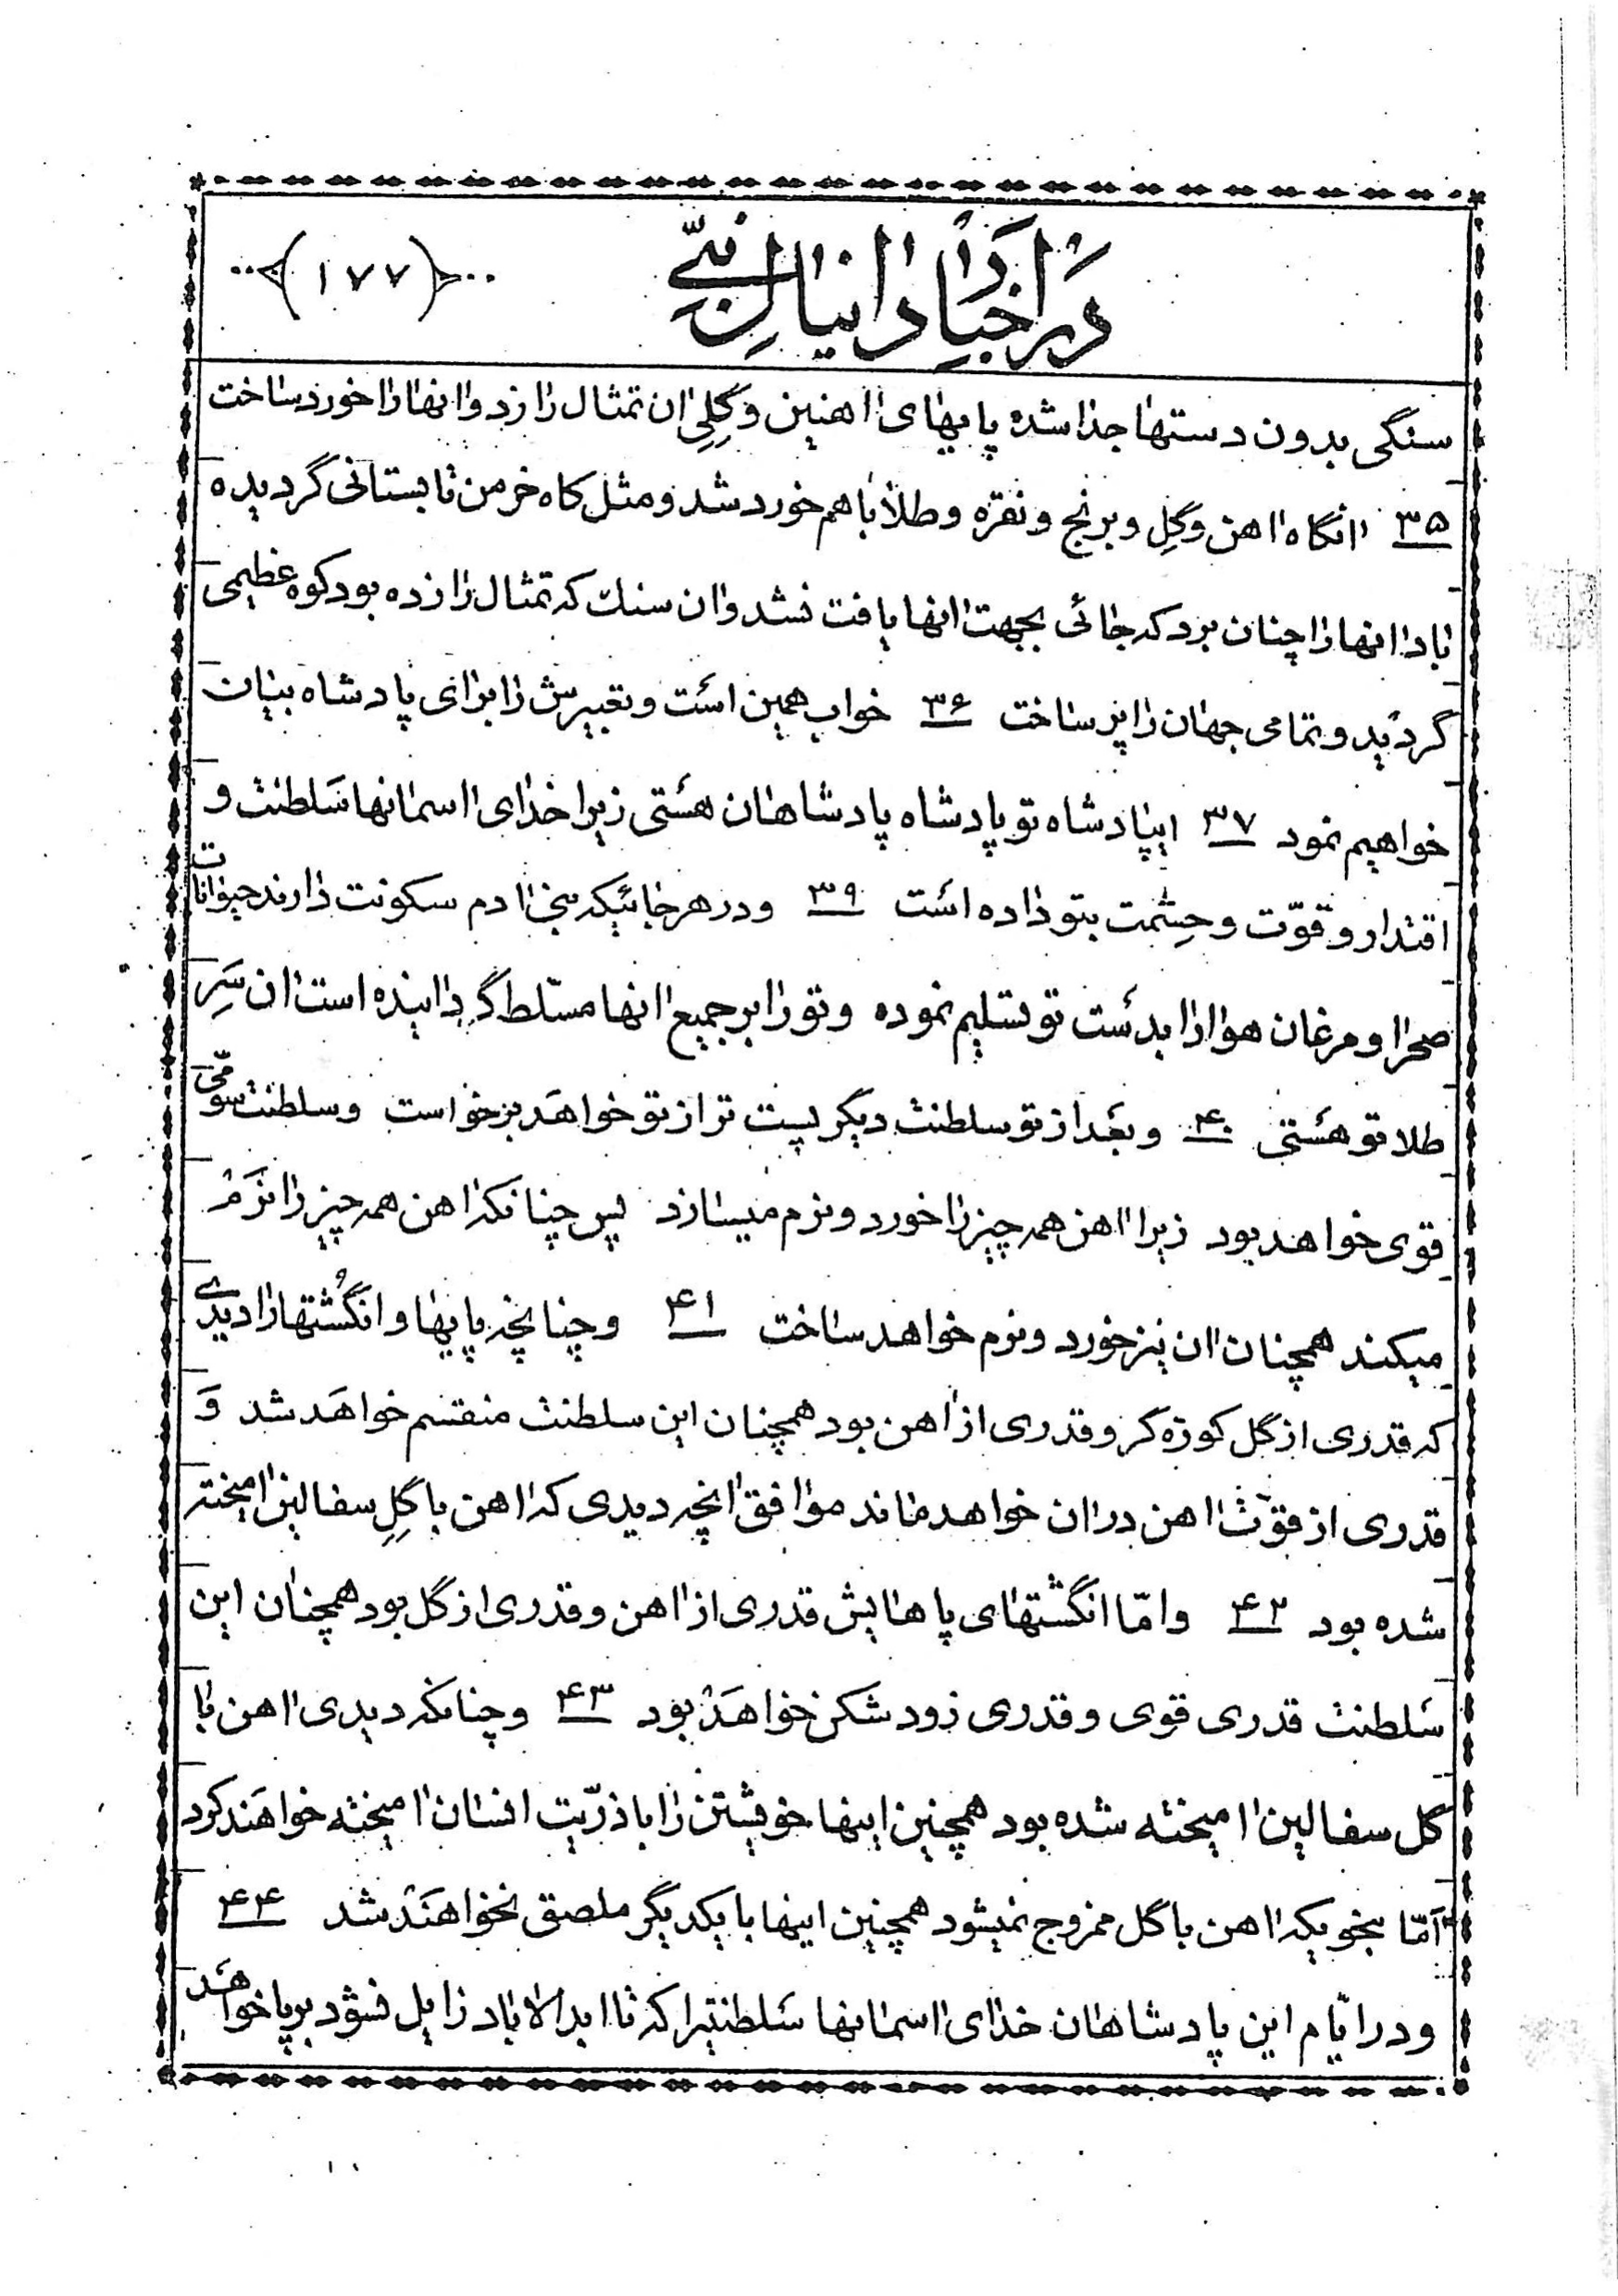 در اخبار دانیال نبی
(۱۷۷)
سنگی بدون دستها جدا شده پایهای اهنین و گِلِی ان تمثال را زد و انها را خورد ساخت
۳۵ انگاه اهن و گِل و برنج و نقره و طلا با هم خورد شد و مثل کاه خرمن تابستانی گردیده
باد انها را چنان برد که جائی بجهت انها یافت نشد و ان سنك که تمثال را زده بود کوه عظیمی
گردید و تمامی جهان را پر ساخت ۳۶ خواب همین است و تعبیرش را برای پادشاه بیان
خواهیم نمود ۳۷ ایپادشاه تو پادشاه پادشاهان هستی زیرا خدای اسمانها سَلطنت و
اقتدار و قوّت و حِشمت بتو داده است ۳۹ و در هر جائیکه بنی ادم سکونت دارند حیوانات
صحرا و مرغان هوا را بدست تو تسلیم نموده و تو را بر جمیع انها مسلّط گردانیده است ان سَرِ
طلا تو هستی ۴۰ و بعَد از تو سلطنت دیگر پست تر از تو خواهَد برخواست و سلطنت سوّمی
قوی خواهد بود زیرا اهن همه چیز را خورد و نرم میسازد پس چنانکه اهن همه چیز را نَرَمْ
میکند همچنان ان نیز خورد و نرم خواهد ساخت ۴۱ و چنانچه پایها و انگُشتها را دیدی
که قدری از گل کوزه گر و قدری از اهن بود همچنان این سلطنت منقسم خواهَد شد وَ
قدری از قوّت اهن در ان خواهد ماند موافق انچه دیدی که اهن با گِلِ سفالین امیخته
شده بود ۴۲ و امّا انگشتهای پاهایش قدری از اهن و قدری از گل بود همچنان این
سَلطنت قدری قوی و قدری زود شکن خواهَدْ بود ۴۳ و چنانکه دیدی اهن با
گل سفالین امیخته شده بود همچنین اینها خویشتن را با ذرّیت انسان امیخته خواهَند کرد
اَمّا بنحویکه اهن با گل ممزوج نمیشود همچنین اینها با یکدیگر ملصق نخواهَنَدْ شد ۴۴
و در ایّام این پادشاهان خدای اسمانها سَلطنتیرا که تا ابد الاباد زایل نشود برپا خواهَد